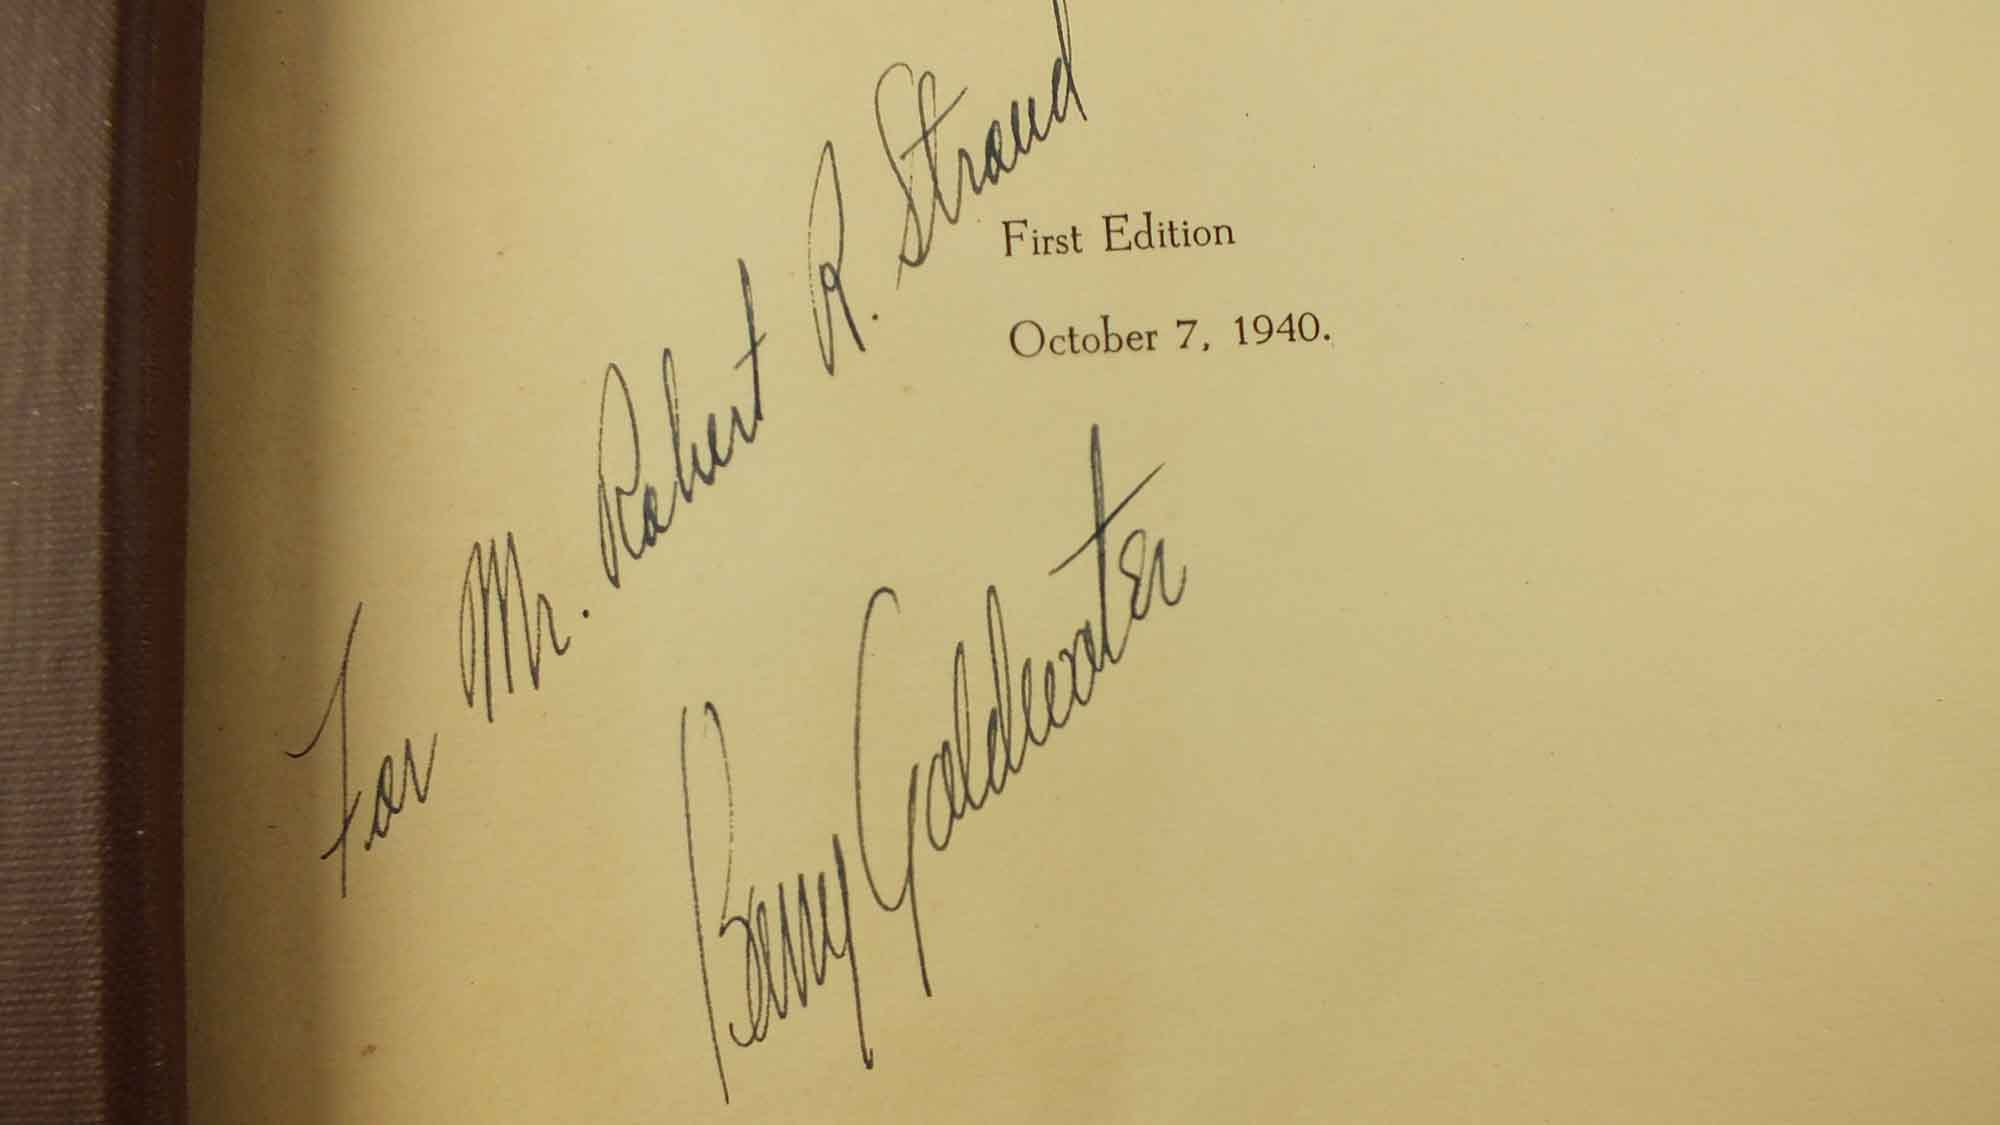 For Mr. Robert R. Straud
First Edition
October 7, 1940.
Barry Goldwater